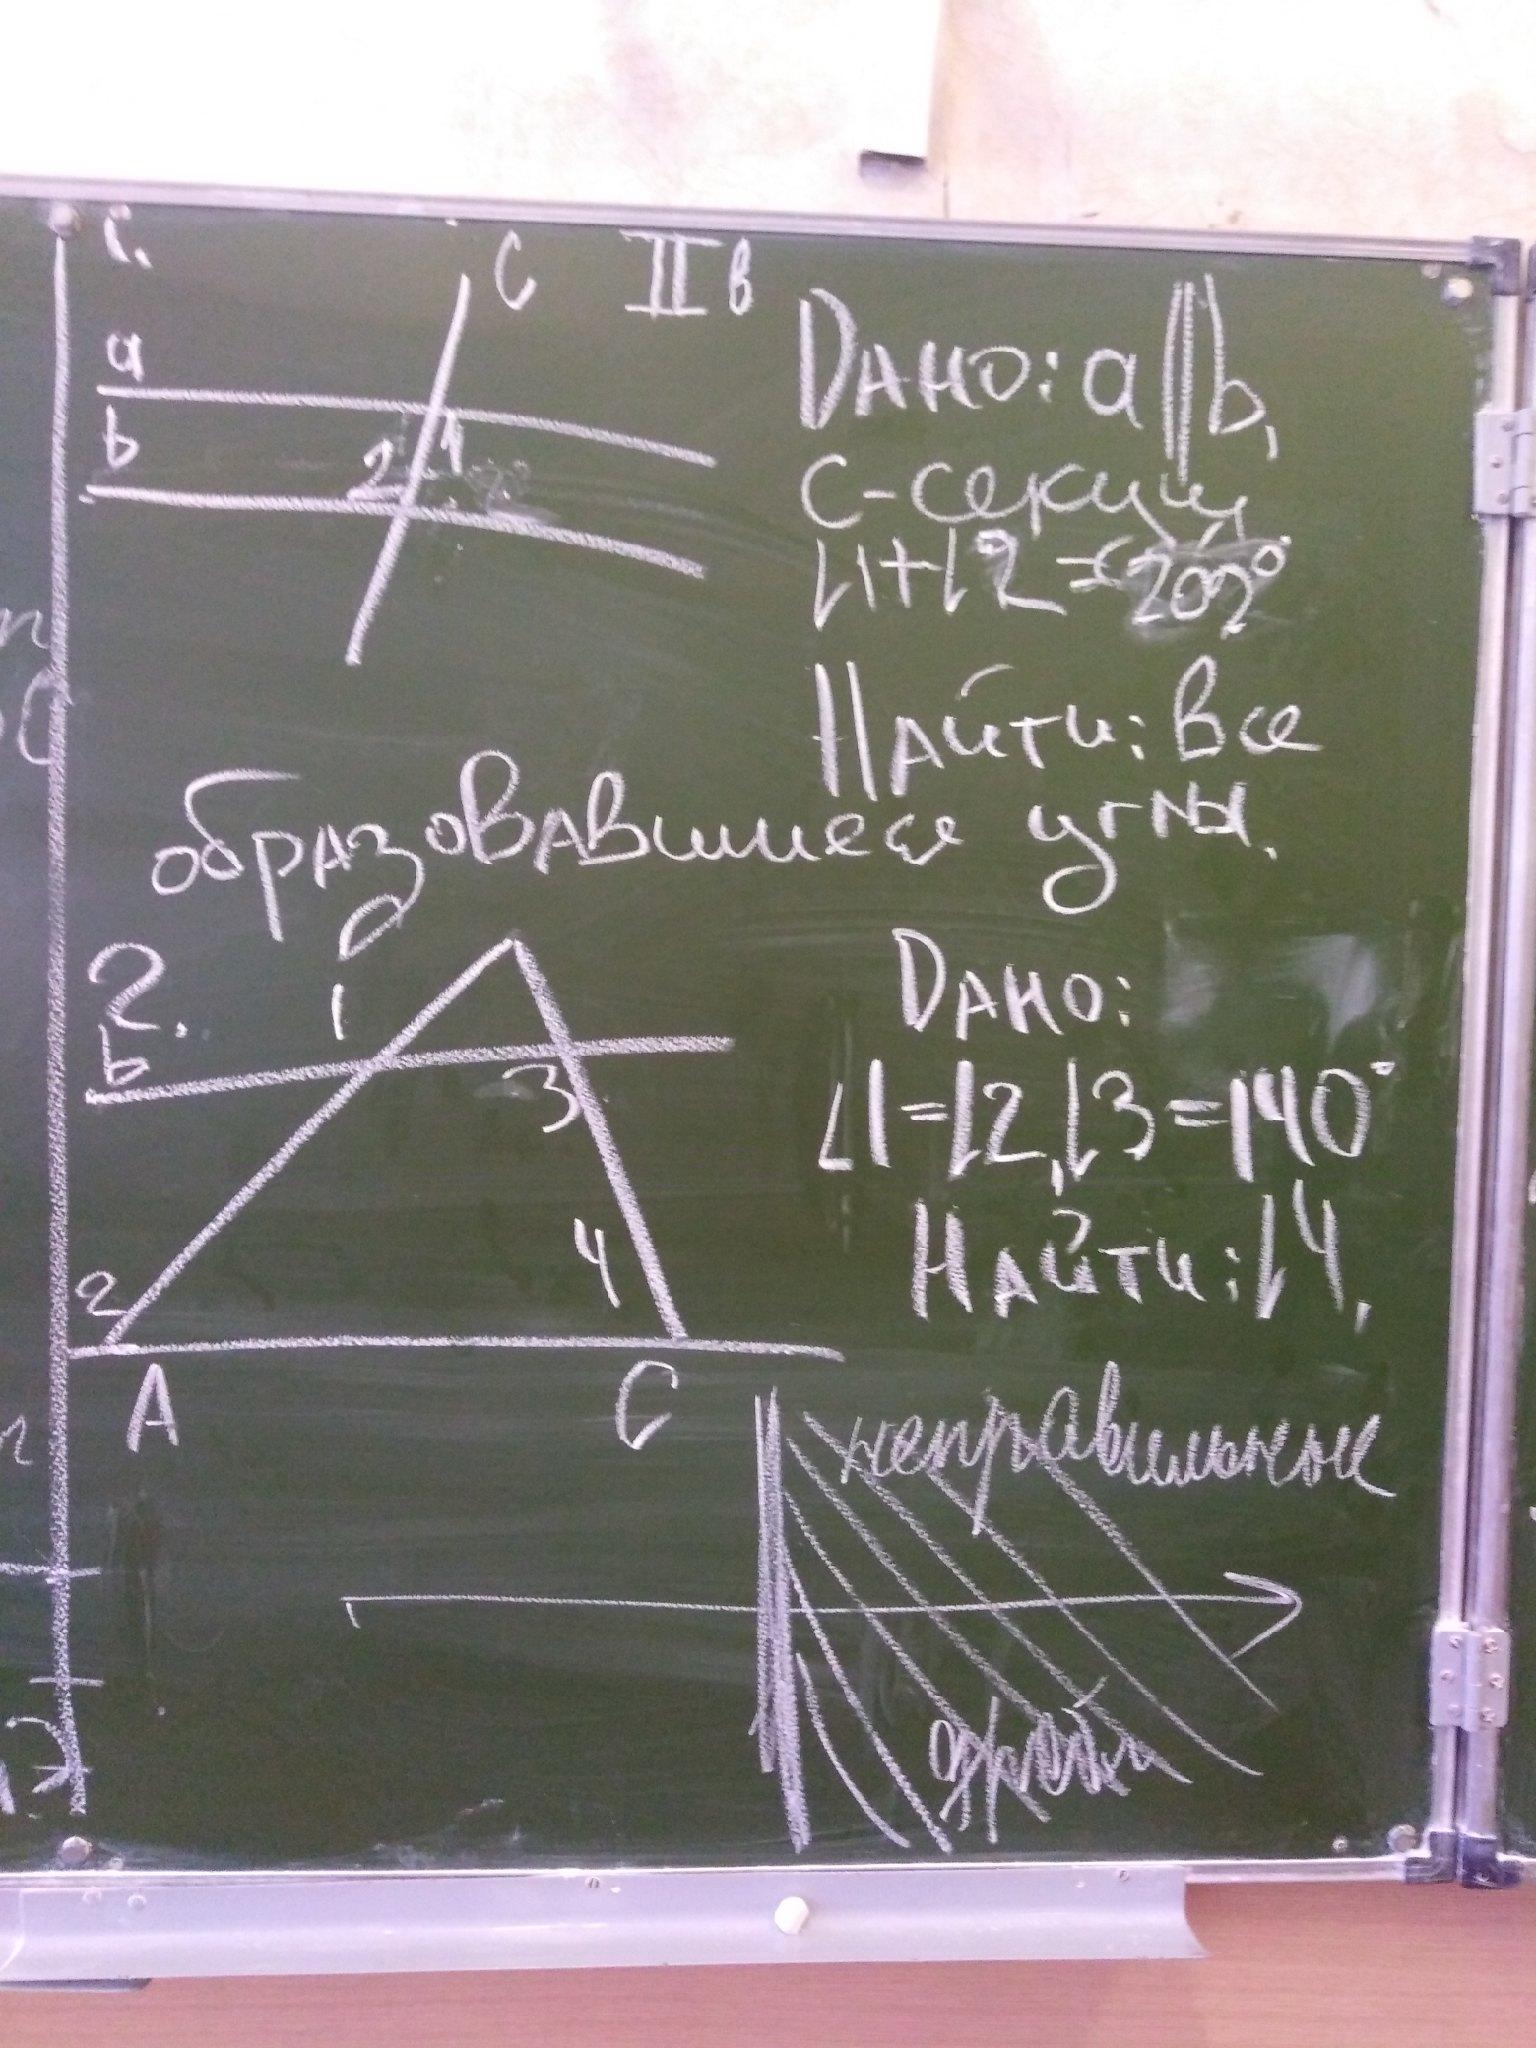 1.
c
II в
a
b
2 1
Дано: a || b,
c-секущ,
∠1+∠2=
Найти: все
образовавшиеся углы.
2.
b
1
3
2
4
A
C
Дано:
∠1=∠2, ∠3=140°
Найти: ∠4.
неправильные